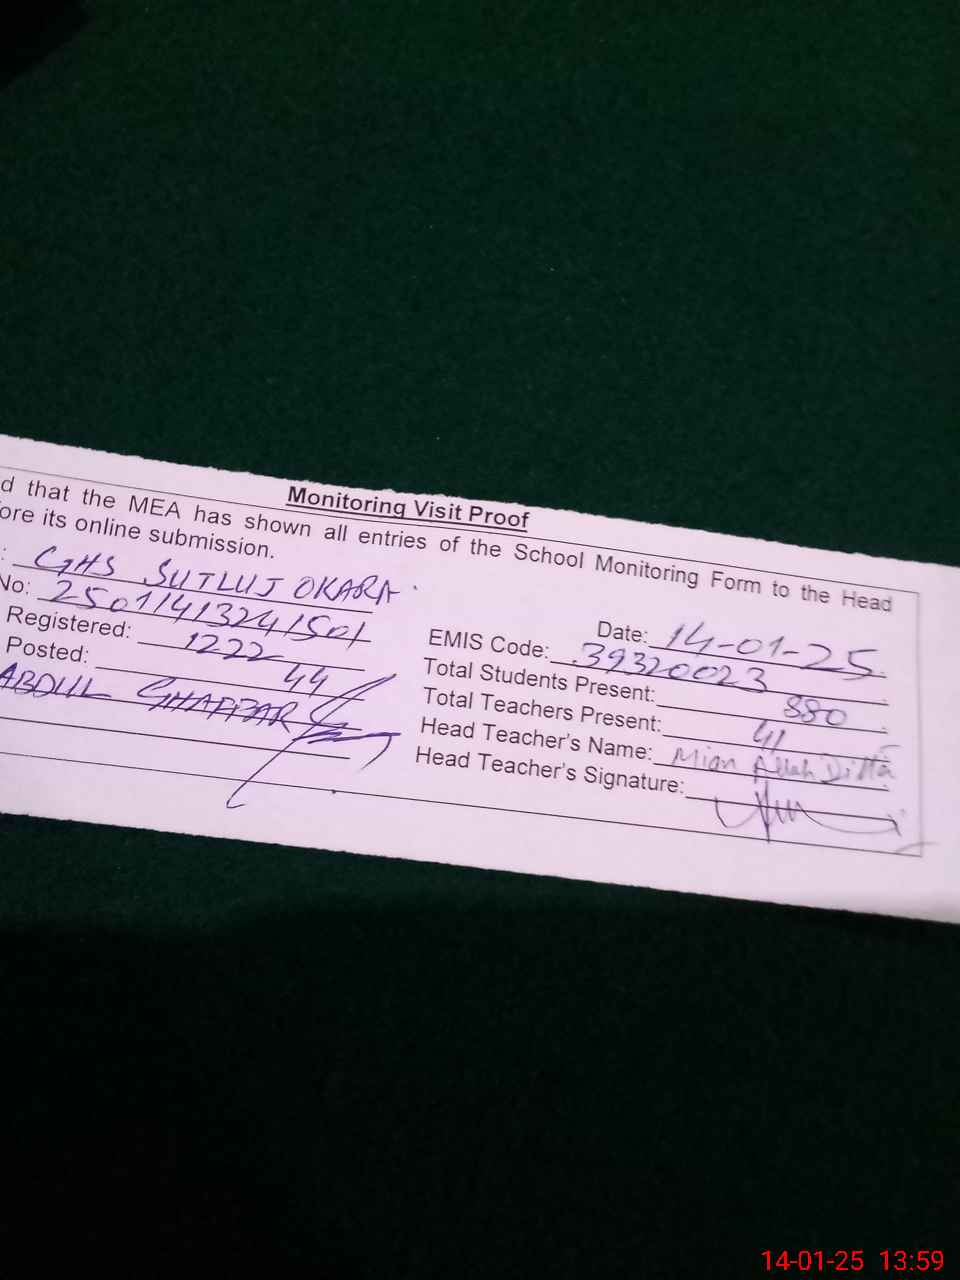 Monitoring Visit Proof
d that the MEA has shown all entries of the School Monitoring Form to the Head
ore its online submission.
: GHS SUTLUJ OKARA
Date: 14-01-25
No: 25011413241501
EMIS Code: 39320023
Registered: 1222
Total Students Present: 880
Posted: 44
Total Teachers Present: 41
ABDUL GHAFFAR
Head Teacher's Name: Mian Allah Ditta
Head Teacher's Signature:
14-01-25 13:59